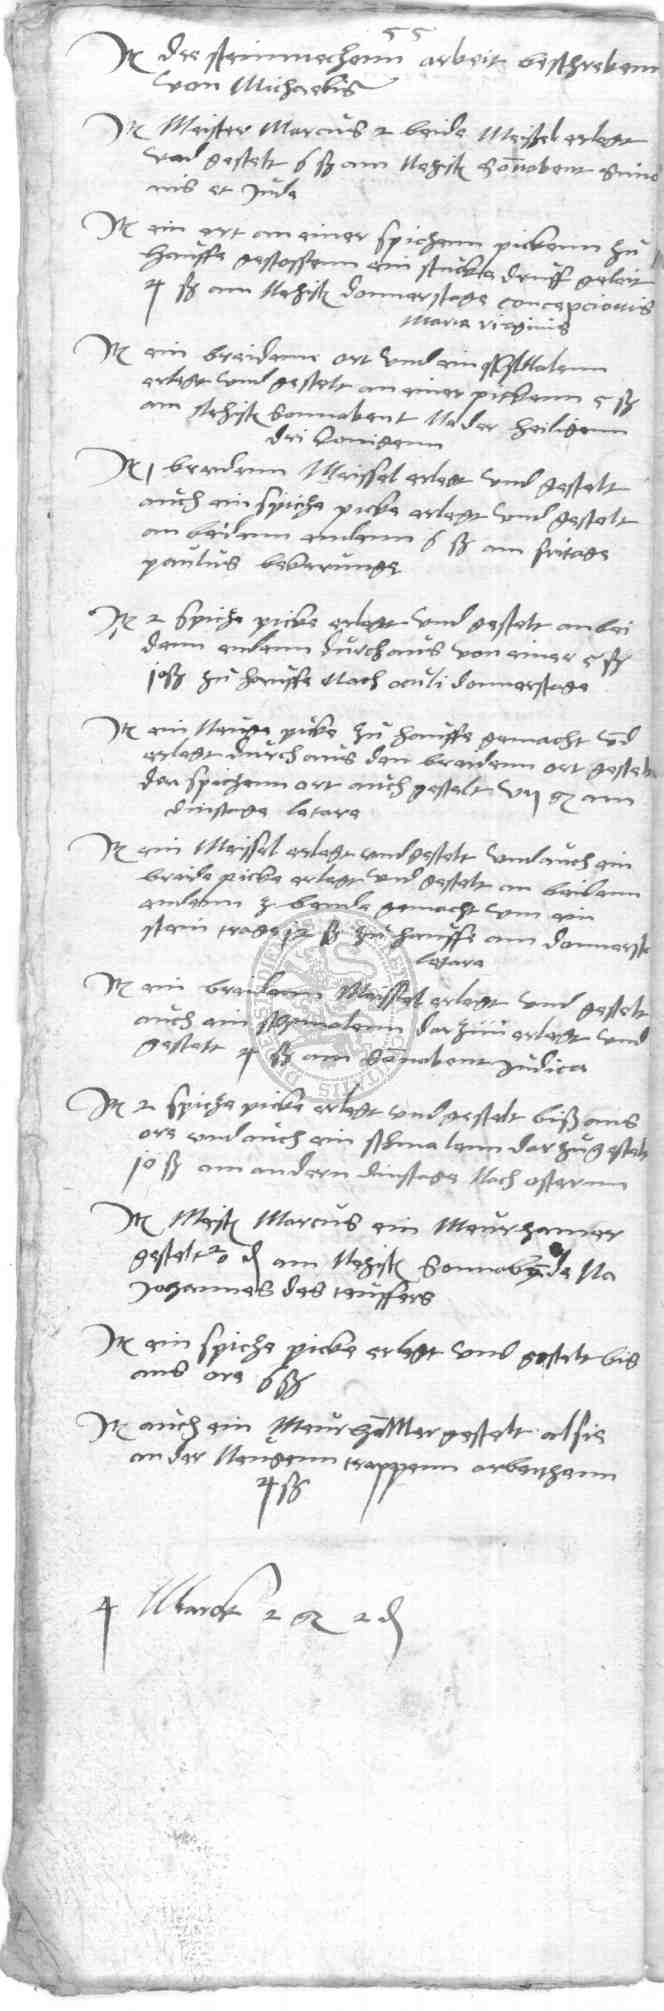 55
It die steinmechenn arbeit beschrebenn
von Michaelis
It Meister Marcus 2 beide Meissel erlegt
und gestelt 6 ß am Nehist Sonnobent Simo
nis et Jude
It ein ort an einer spiczenn pickenn zu
hauffe gestossenn ein stucke druff geleit
4 ß am Nehist donnerstage concepcionis
Maria virginis
It ein breidenn ort und ein
erlegt und gestelt an einer pickenn 5 ß
am nehist Sonnabent Na der heiligenn
dri konigenn
It 1 breidenn Meissel erlegt und gestelt
auch ein spicze picke erlegt und gestelt
an beidenn endenn 6 ß am fritage
paulus bekerunge
It 2 spicze picke erlegt und gestelt an bei
denn endenn durchaus von einer 5 ß
10 ß zu hauffe Nach oculi donnerstage
It ein Neuge picke zu hauffe gemacht und
erlegt durchaus den breidenn ort gestelt
den spiczenn ort auch gestelt am
dinstage letare
It ein Meissel erlegt und gestelt und auch ein
breide picke erlegt und gestelt an beidenn
endenn bende gemacht um ein
stein trage 12 ß zu hauffe am donnerst
letare
It ein breidenn Meissel erlegt und gestelt
auch ein schmalenn darzu erlegt und
gestelt 4 ß am Sonnabent Judica
It 2 spicze picke erlegt und gestelt biß ans
ore und auch ein schmalenn darzu gestelt
10 ß am andern dinstage Nach osternn
It Meist Marcus ein Meurhamer
gestelt 20 d am Nehist Sonnabende Na
Johannes des teuffers
It ein spicze picke erlegt und gestelt bis
ans ore 6 ß
It auch ein Meurhammer gestelt als sie
an der Neugenn trappenn arbeithenn
4 ß
4 Marck 2 2 d